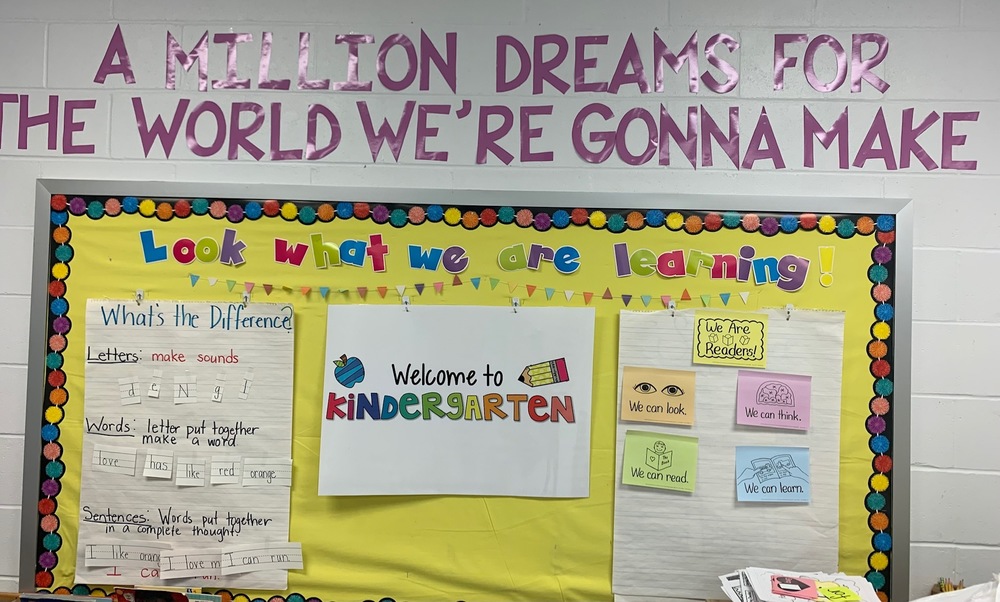 A MILLION DREAMS FOR
THE WORLD WE'RE GONNA MAKE
Look what we are learning!
What's the Difference?
Letters: make sounds
d e N g l
Words: letter put together
make a word
love has like red orange
Sentences: Words put together
in a complete thought.
I like orang I love m I can run
I ca run
Welcome to
KINDERGARTEN
We Are
Readers!
We can look.
We can think.
We can read.
We can learn.